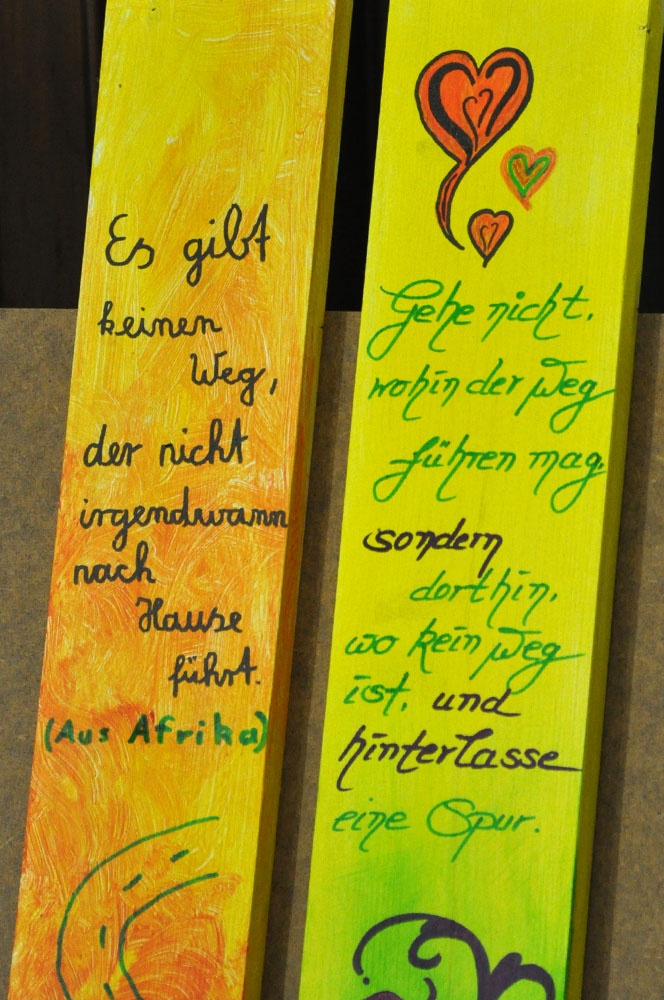 Es gibt
keinen
Weg,
der nicht
irgendwann
nach
Hause
führt.
(Aus Afrika)
Gehe nicht,
wohin der Weg
führen mag,
sondern
dorthin,
wo kein Weg
ist, und
hinterlasse
eine Spur.